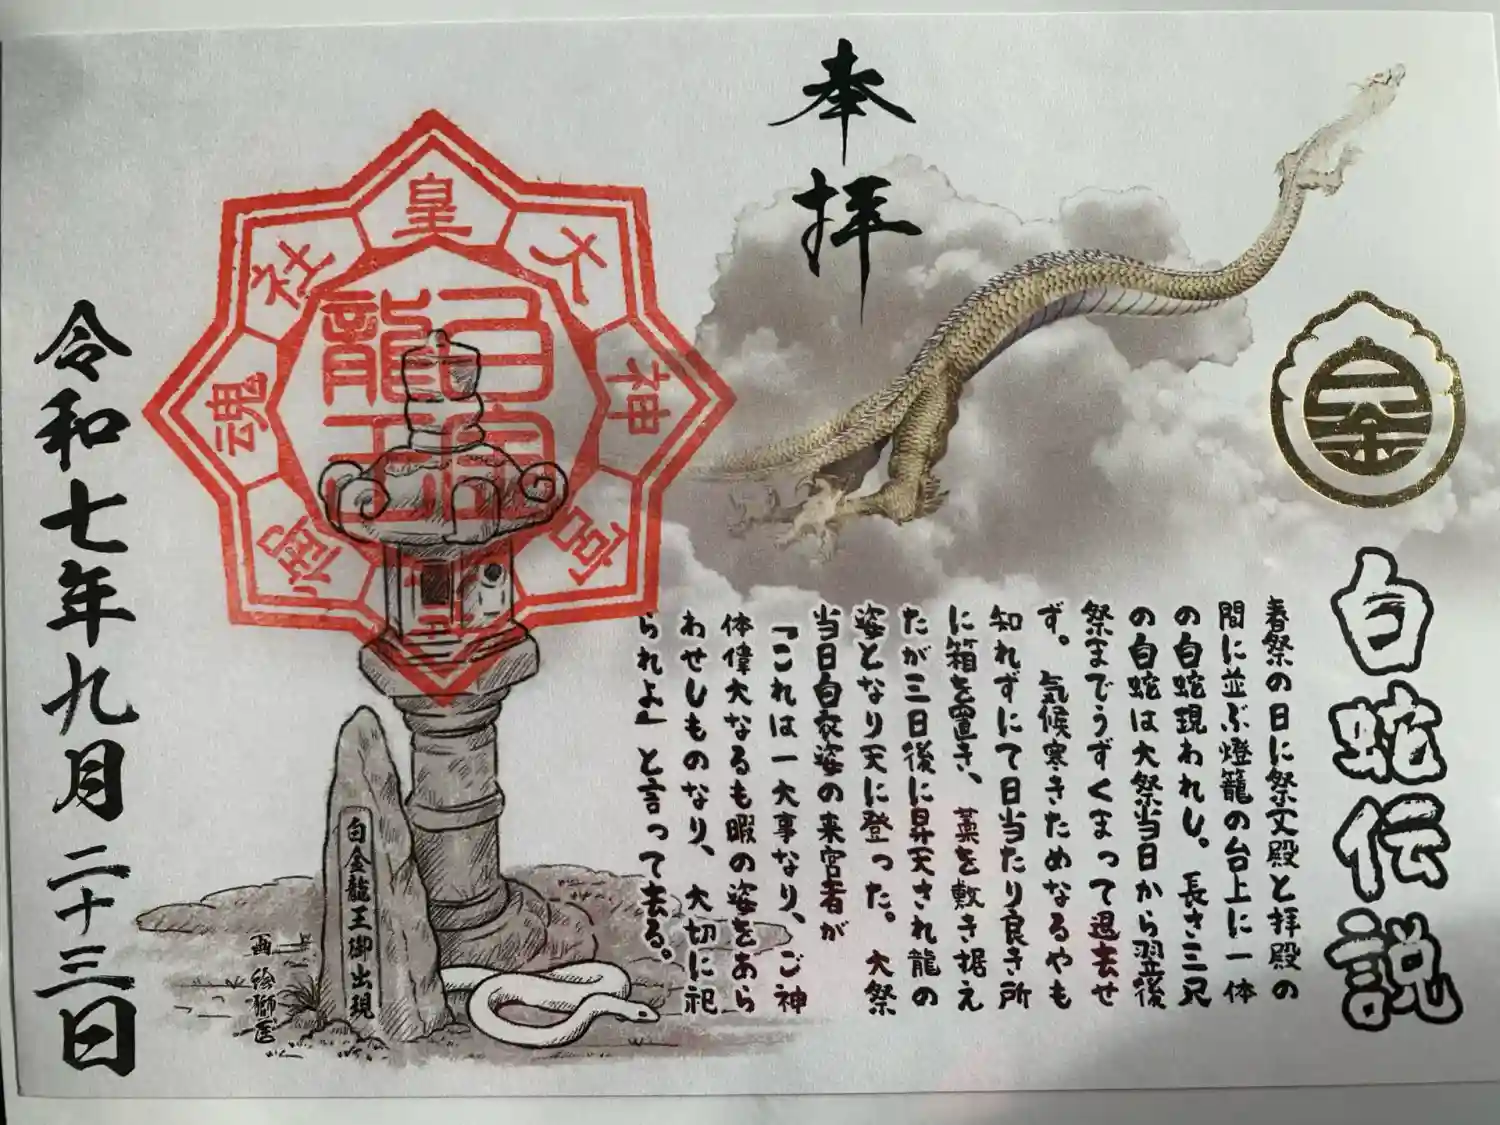 奉拝
白蛇伝説
春祭の日に祭文殿と拝殿の
間に並ぶ燈籠の台上に一体
の白蛇現われし。長さ三尺
の白蛇は大祭当日から翌後
祭までうずくまって退去せ
ず。気候寒きためなるやも
知れずにて日当たり良き所
に箱を置き、藁を敷き据え
たが三日後に昇天され龍の
姿となり天に登った。大祭
当日白衣姿の来宮者が
「これは一大事なり、ご神
体偉大なるも暇の姿をあら
わせしものなり、大切に祀
られよ」と言って去る。
金
皇大神宮御魂社
白金龍王
白金龍王御出現
画 絵獅匠
令和七年九月二十三日